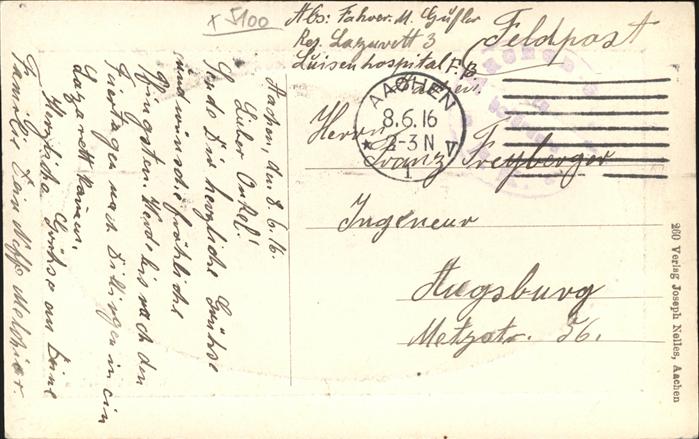 x 5100
Abs: Fahrer. M. Gufler
Res. Lazarett 3
Luisenhospital F. B.
Aachen.
Feldpost
AACHEN
8.6.16
2-3 N
* 1 V
Herrn
Franz Freyberger
Ingeneur
Augsburg
Metzstr. 56.
Aachen, den 8.6.16.
Lieber Onkel!
Sende Dir herzliche Grüsse
und wünsche fröhliche
Pfingsten. Werde bis nach den
Feiertagen nach Dillingen in ein
Lazarett kommen.
Herzliche Grüsse an Deine
Familie Dein Neffe Melchior
260 Verlag Joseph Nelles, Aachen